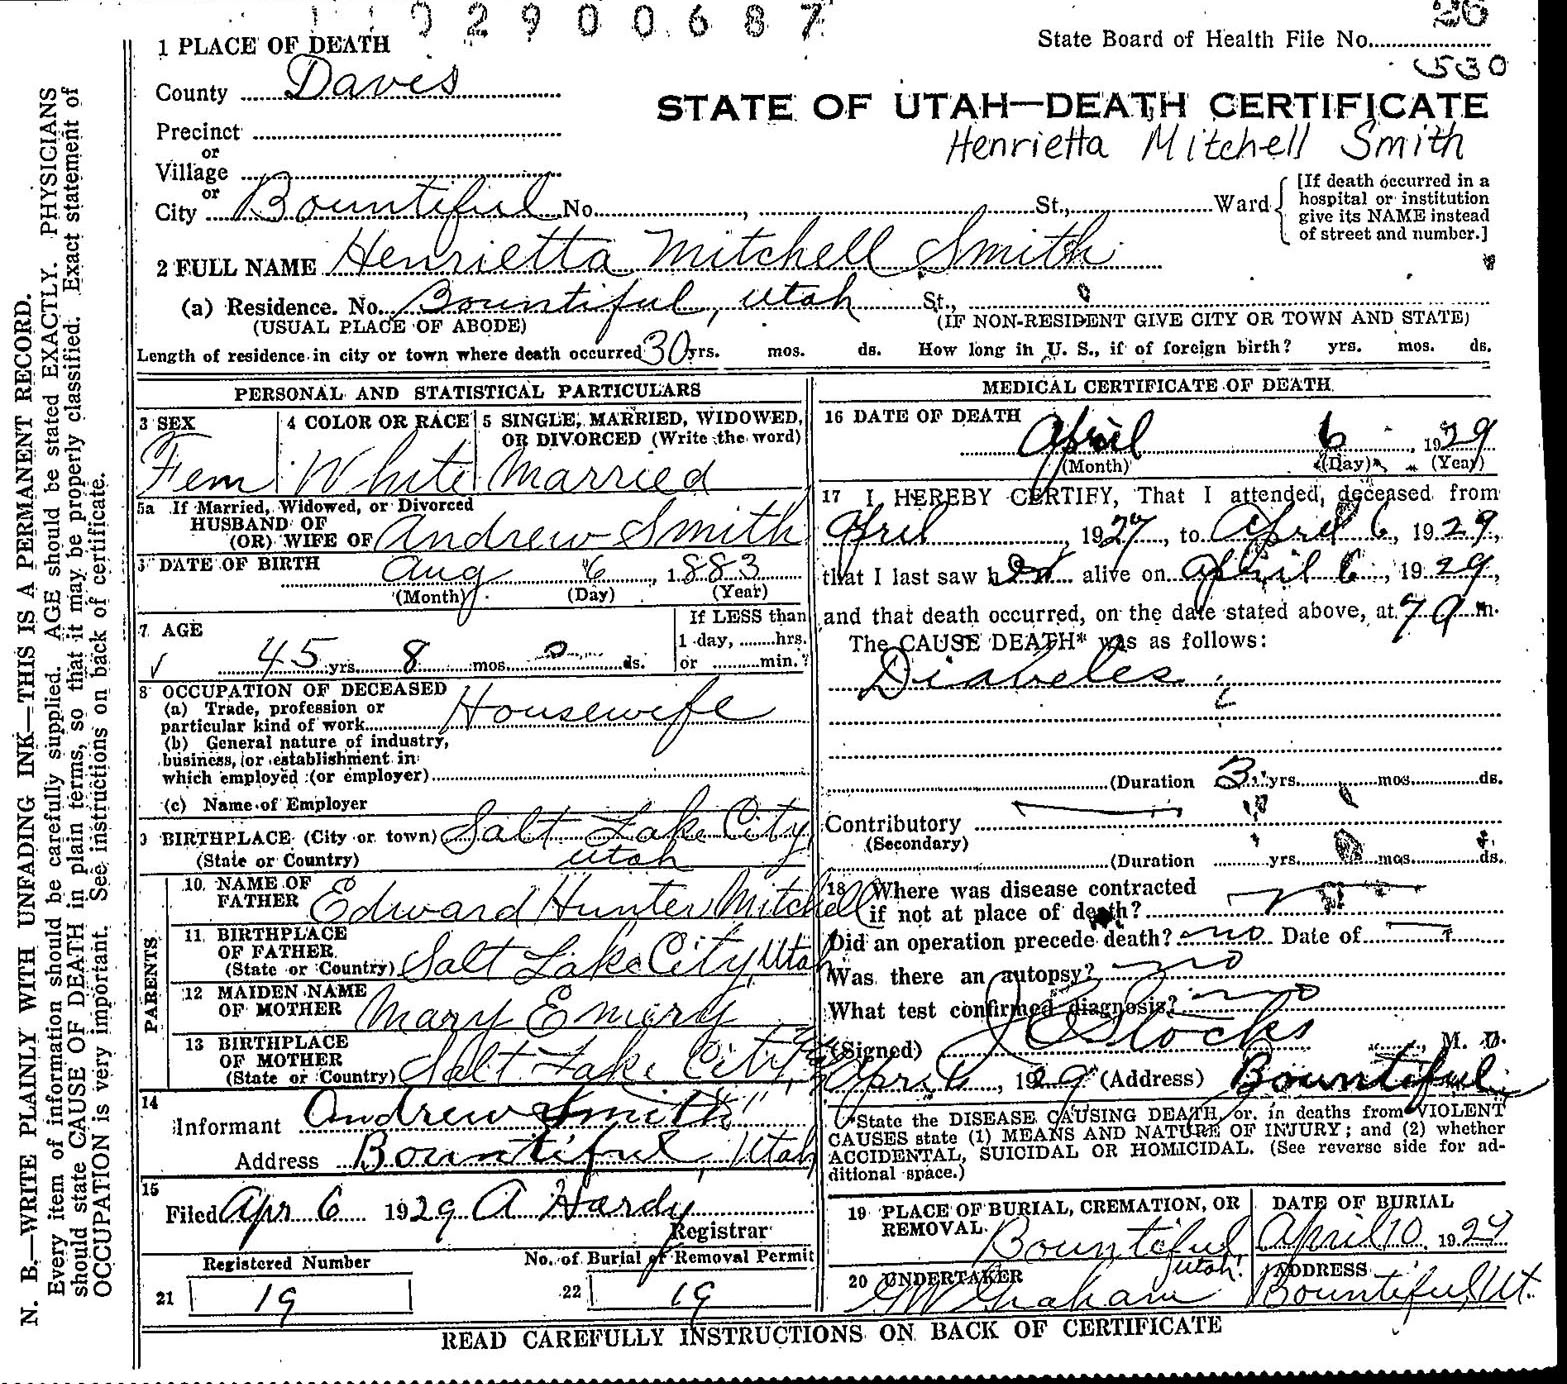 02900687
26
1 PLACE OF DEATH
State Board of Health File No.
530
County Davis
STATE OF UTAH—DEATH CERTIFICATE
Precinct
Henrietta Mitchell Smith
or
Village
or
City Bountiful No. , St., Ward
[If death occurred in a
hospital or institution
give its NAME instead
of street and number.]
2 FULL NAME Henrietta Mitchell Smith
(a) Residence. No. Bountiful, Utah St.,
(USUAL PLACE OF ABODE) (IF NON-RESIDENT GIVE CITY OR TOWN AND STATE)
Length of residence in city or town where death occurred 30 yrs. mos. ds. How long in U. S., if of foreign birth? yrs. mos. ds.
PERSONAL AND STATISTICAL PARTICULARS
3 SEX
Fem
4 COLOR OR RACE
White
5 SINGLE, MARRIED, WIDOWED,
OR DIVORCED (Write the word)
Married
5a If Married, Widowed, or Divorced
HUSBAND OF
(OR) WIFE OF Andrew Smith
DATE OF BIRTH
Aug 6, 1883
(Month) (Day) (Year)
7 AGE
45 yrs. 8 mos. 0 ds.
If LESS than
1 day, hrs.
or min.?
8 OCCUPATION OF DECEASED
(a) Trade, profession or
particular kind of work Housewife
(b) General nature of industry,
business, or establishment in
which employed (or employer)
(c) Name of Employer
9 BIRTHPLACE (City or town) Salt Lake City
(State or Country) Utah
PARENTS
10 NAME OF
FATHER Edward Hunter Mitchell
11 BIRTHPLACE
OF FATHER
(State or Country) Salt Lake City, Utah
12 MAIDEN NAME
OF MOTHER Mary Emery
13 BIRTHPLACE
OF MOTHER
(State or Country) Salt Lake City,
14
Informant Andrew Smith
Address Bountiful, Utah
15
Filed Apr 6 1929 A Hardy
Registrar
Registered Number
21 19
No. of Burial or Removal Permit
22 19
MEDICAL CERTIFICATE OF DEATH
16 DATE OF DEATH
April 6, 1929
(Month) (Day) (Year)
17 I HEREBY CERTIFY, That I attended, deceased from
April, 1927, to April 6, 1929,
that I last saw her alive on April 6, 1929,
and that death occurred, on the date stated above, at 7 a m.
The CAUSE DEATH* was as follows:
Diabetes
(Duration 3 yrs. mos. ds.
Contributory
(Secondary)
(Duration yrs. mos. ds.
18 Where was disease contracted
if not at place of death?
Did an operation precede death? no Date of
Was there an autopsy? no
What test confirmed diagnosis? no
(Signed) J C Stocks, M. D.
April 6, 1929 (Address) Bountiful
*State the DISEASE CAUSING DEATH, or, in deaths from VIOLENT
CAUSES state (1) MEANS AND NATURE OF INJURY; and (2) whether
ACCIDENTAL, SUICIDAL OR HOMICIDAL. (See reverse side for ad-
ditional space.)
19 PLACE OF BURIAL, CREMATION, OR
REMOVAL
Bountiful
Utah.
DATE OF BURIAL
April 10, 1929
20 UNDERTAKER
Graham
ADDRESS
Bountiful, Ut.
READ CAREFULLY INSTRUCTIONS ON BACK OF CERTIFICATE
N. B.—WRITE PLAINLY WITH UNFADING INK—THIS IS A PERMANENT RECORD.
Every item of information should be carefully supplied. AGE should be stated EXACTLY. PHYSICIANS
should state CAUSE OF DEATH in plain terms, so that it may be properly classified. Exact statement of
OCCUPATION is very important. See instructions on back of certificate.